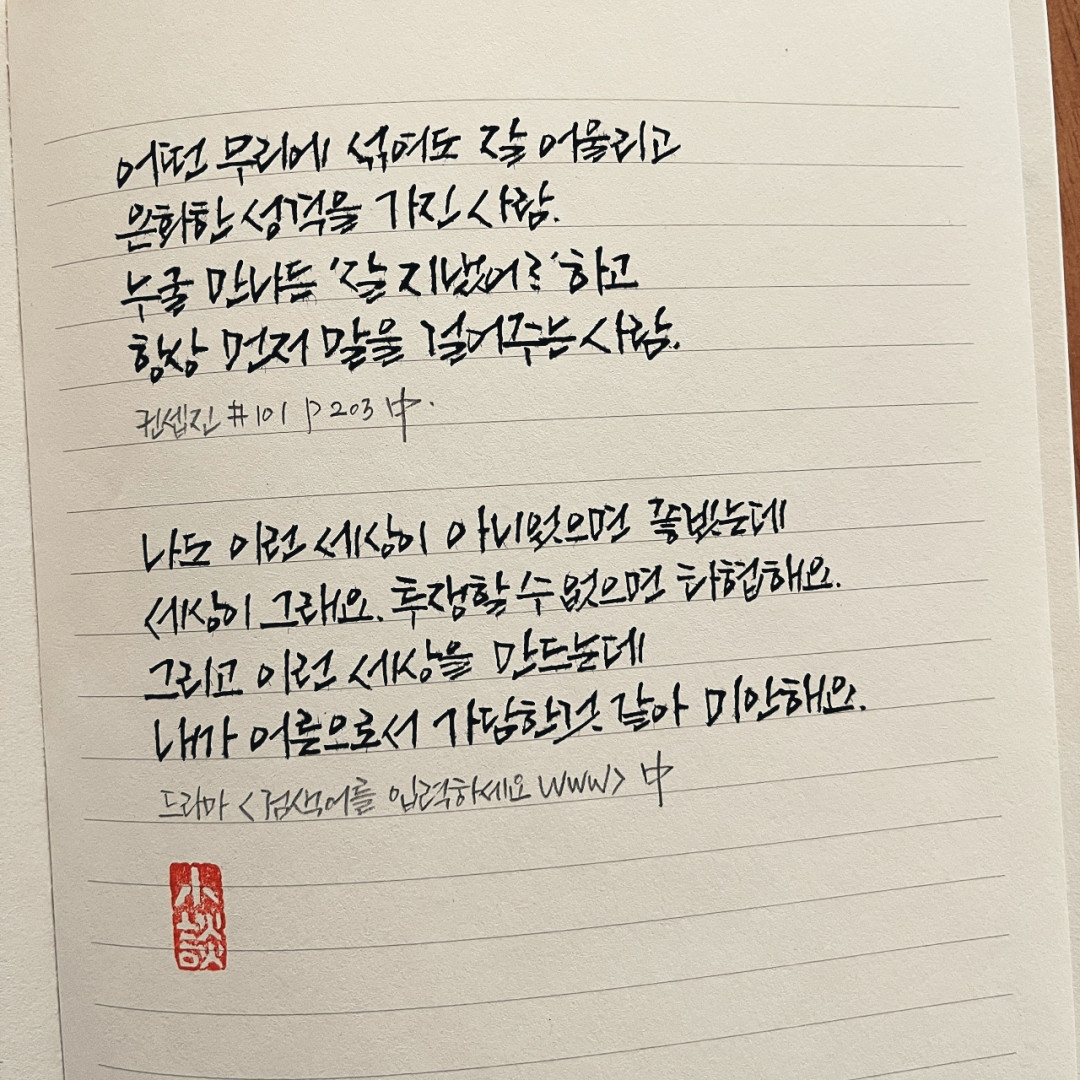 어떤 무리에 섞여도 잘 어울리고
온화한 성격을 가진 사람.
누굴 만나든 '잘 지냈어?' 하고
항상 먼저 말을 걸어주는 사람.
컨셉진 #101 P 203 中.
나도 이런 세상이 아니었으면 좋겠는데
세상이 그래요. 투쟁할 수 없으면 타협해요.
그리고 이런 세상을 만드는데
내가 어른으로서 가담한 것 같아 미안해요.
드라마 <검색어를 입력하세요 WWW> 中
小談